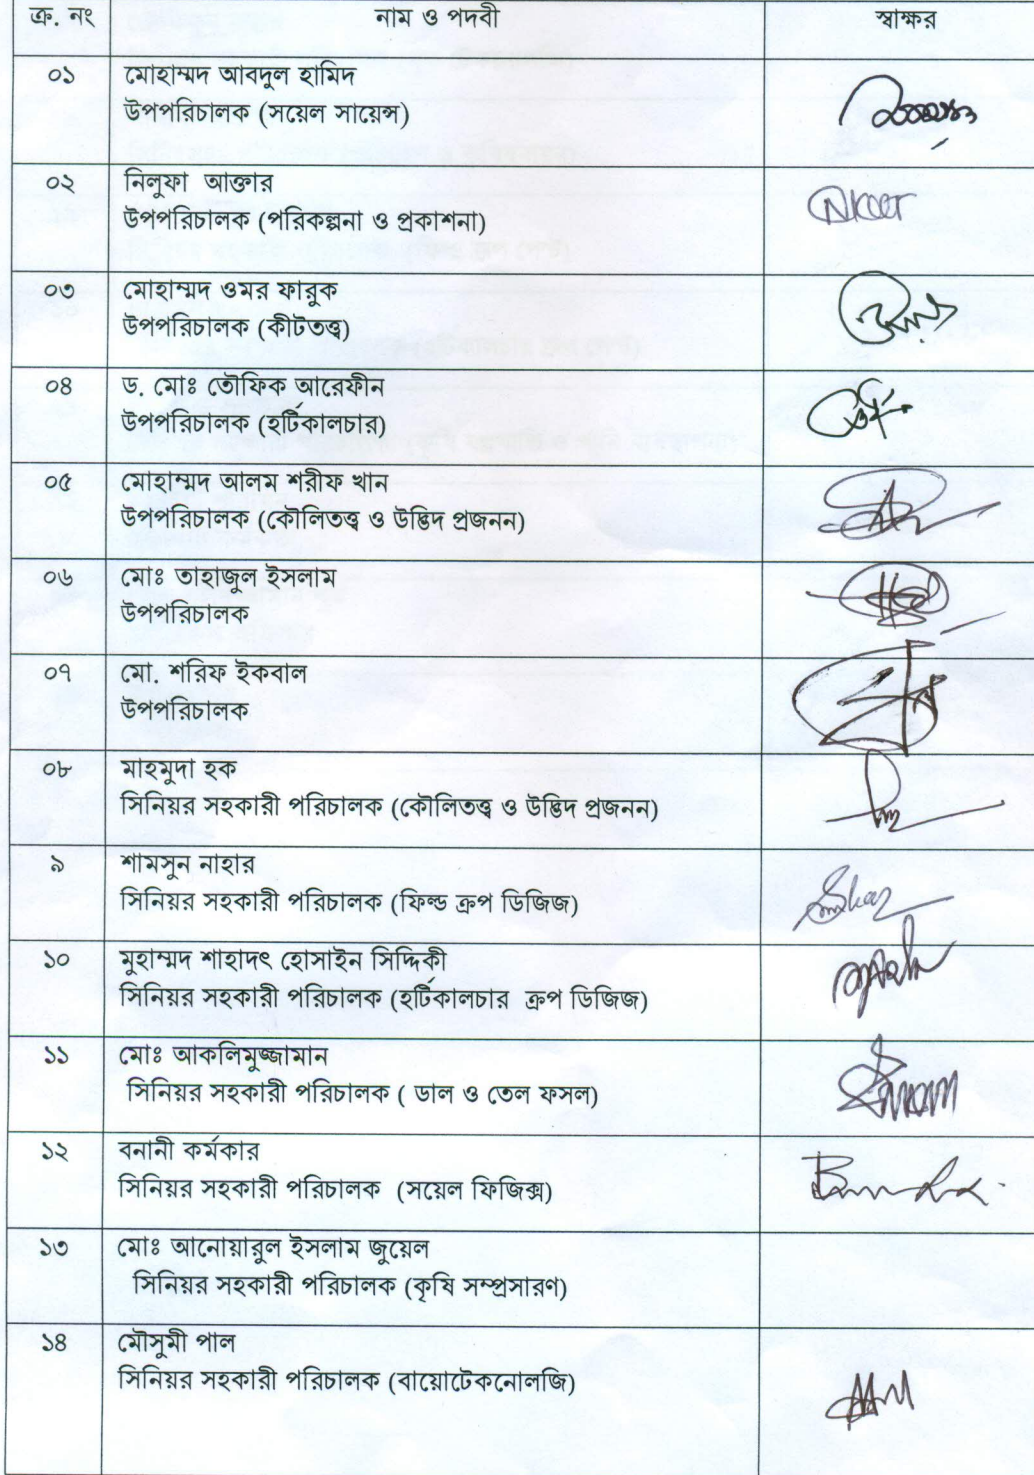 ক্র. নং নাম ও পদবী স্বাক্ষর
০১ মোহাম্মদ আবদুল হামিদ
উপপরিচালক (সয়েল সায়েন্স)
০২ নিলুফা আক্তার
উপপরিচালক (পরিকল্পনা ও প্রকাশনা)
০৩ মোহাম্মদ ওমর ফারুক
উপপরিচালক (কীটতত্ত্ব)
০৪ ড. মোঃ তৌফিক আরেফীন
উপপরিচালক (হর্টিকালচার)
০৫ মোহাম্মদ আলম শরীফ খান
উপপরিচালক (কৌলিতত্ত্ব ও উদ্ভিদ প্রজনন)
০৬ মোঃ তাহাজুল ইসলাম
উপপরিচালক
০৭ মো. শরিফ ইকবাল
উপপরিচালক
০৮ মাহমুদা হক
সিনিয়র সহকারী পরিচালক (কৌলিতত্ত্ব ও উদ্ভিদ প্রজনন)
৯ শামসুন নাহার
সিনিয়র সহকারী পরিচালক (ফিল্ড ক্রপ ডিজিজ)
১০ মুহাম্মদ শাহাদৎ হোসাইন সিদ্দিকী
সিনিয়র সহকারী পরিচালক (হর্টিকালচার ক্রপ ডিজিজ)
১১ মোঃ আকলিমুজ্জামান
সিনিয়র সহকারী পরিচালক ( ডাল ও তেল ফসল)
১২ বনানী কর্মকার
সিনিয়র সহকারী পরিচালক (সয়েল ফিজিক্স)
১৩ মোঃ আনোয়ারুল ইসলাম জুয়েল
সিনিয়র সহকারী পরিচালক (কৃষি সম্প্রসারণ)
১৪ মৌসুমী পাল
সিনিয়র সহকারী পরিচালক (বায়োটেকনোলজি)